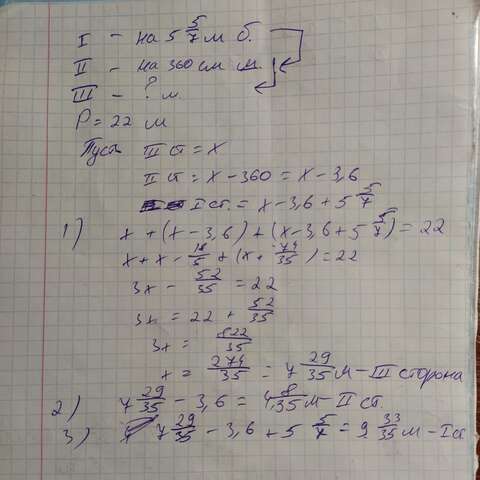 I - на 5 5/7 м б.
II - на 360 см м.
III - ? м.
P = 22 м
Пусть III ст = x
II ст = x - 360 = x - 3,6
I ст. = x - 3,6 + 5 5/7
1) x + (x - 3,6) + (x - 3,6 + 5 5/7) = 22
x + x - 18/5 + (x + 74/35) = 22
3x - 52/35 = 22
3x = 22 + 52/35
3x = 822/35
x = 274/35 = 7 29/35 м - III сторона
2) 7 29/35 - 3,6 = 4 8/35 м - II ст.
3) 7 29/35 - 3,6 + 5 5/7 = 9 33/35 м - I ст